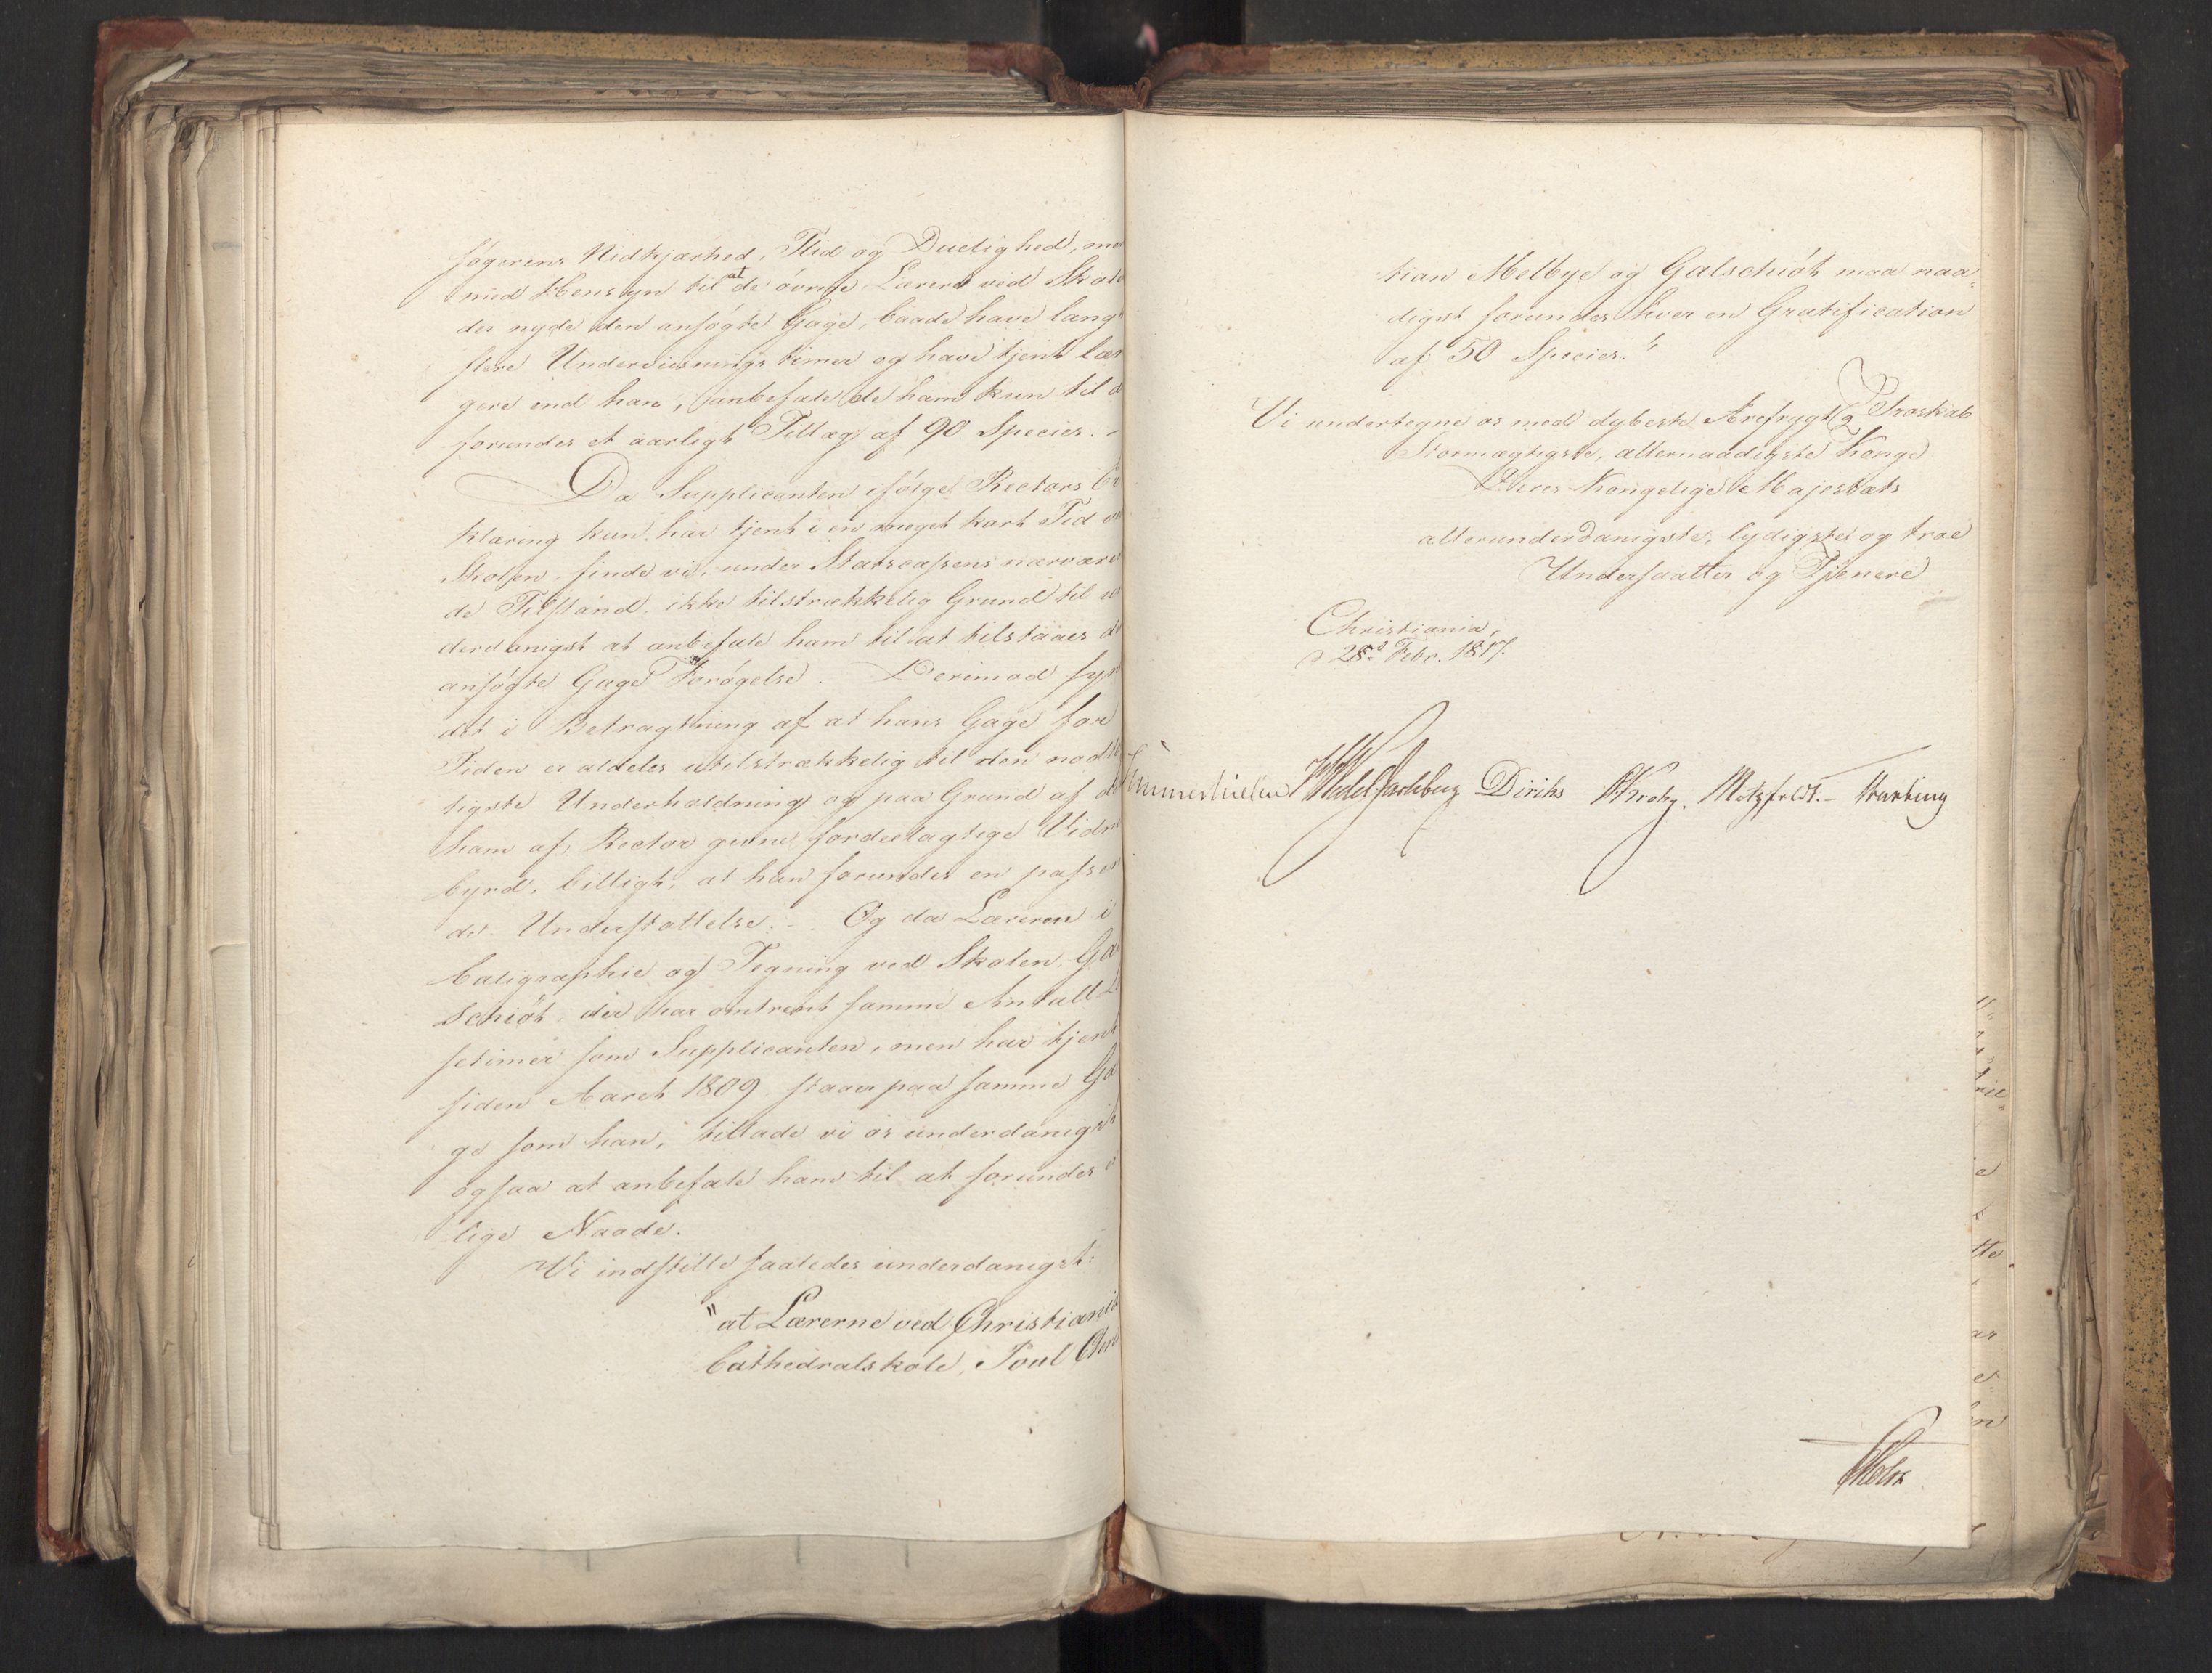 søgerens Nidkjærhed, Flid og Duelighed, me
med Hensyn til at de øvrige Lærere ved Skole
der nyde den ansøgte Gage, baade have langt
flere Underviisnings timer og have tjent læn
gere end han, anbefale de ham kun til a
forundes et aarligt Tillæg af 90 Species. -
Da Supplicanten ifølge Rectors Er
klæring kun har tjent i en meget kort Tid v
Skolen, finde vi, under Statscassens nærværen
de Tilstand, ikke tilstrækkelig Grund til un
derdanigst at anbefale ham til at tilstaaes de
ansøgte Gage Forøgelse. Derimod syn
det i Betragtning af at hans Gage for
Tiden er aldeles utilstrækkelig til den nødt
tigste Underholdning og paa Grund af de
ham af Rector givne fordeelagtige Vidne
byrd, billigt, at han forundes en passen
de Understøttelse. - Og da Læreren i
Caligraphie og Tegning ved Skolen, Gal
schiøt, der har omtrent samme Antall Læ
setimer som Supplicanten, men har tjent
siden Aaret 1809 staaer paa samme Ga
ge som han, tillade vi os underdanigst
ogsaa at anbefale ham til at forundes
lige Naade.
Vi indstille saaledes underdanigst:
"at Lærerne ved Christiania
Cathedralskole, Poul Chri
stian Melbye og Galschiøt maa naa
digst forundes hver en Gratification
af 50 Species."
Vi undertegne os med dybeste Ærefrygt og Troskab
Stormægtigste, allernaadigste Konge
Deres Kongelige Majestæts
allerunderdanigste, lydigste og troe
Undersaatter og Tjenere
Christiania,
d 28d Febr. 1817.
Sommerhielm HWedel Jarlsberg Diriks CKrohg. Motzfeldt. - Vranting
Holst